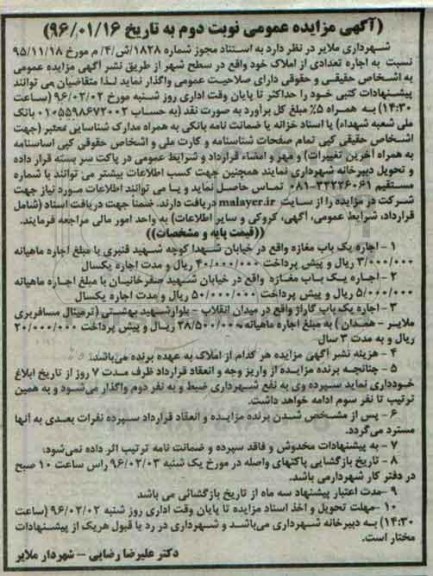 (آگهی مزایده عمومی نوبت دوم به تاریخ ۹۶/۰۱/۱۶)
شهرداری ملایر در نظر دارد به استناد مجوز شماره ۱۸۲۸/ش/۴/م مورخ ۹۵/۱۱/۱۸
نسبت به اجاره تعدادی از املاک خود واقع در سطح شهر از طریق نشر آگهی مزایده عمومی
به اشخاص حقیقی و حقوقی دارای صلاحیت عمومی واگذار نماید لذا متقاضیان می توانند
پیشنهادات کتبی خود را حداکثر تا پایان وقت اداری روز شنبه مورخ ۹۶/۰۲/۰۲ (ساعت
۱۴:۳۰) به همراه ۵٪ مبلغ کل برآورد به صورت نقد (به حساب ۰۱۰۵۵۹۸۶۷۲۰۰۲ بانک
ملی شعبه شهداء) یا اسناد خزانه یا ضمانت نامه بانکی به همراه مدارک شناسایی معتبر (جهت
اشخاص حقیقی کپی تمام صفحات شناسنامه و کارت ملی و اشخاص حقوقی کپی اساسنامه
به همراه آخرین تغییرات) و مهر و امضاء قرارداد و شرایط عمومی در پاکت سر بسته قرار داده
و تحویل دبیرخانه شهرداری نمایند همچنین جهت کسب اطلاعات بیشتر می توانند با شماره
مستقیم ۳۲۲۲۶۰۶۱-۰۸۱ تماس حاصل نماید و یا می توانند اطلاعات مورد نیاز جهت
شرکت در مزایده را از سایت malayer.ir دریافت دارند. ضمنا جهت دریافت اسناد (شامل
قرارداد، شرایط عمومی، آگهی، کروکی و سایر اطلاعات) به واحد امور مالی مراجعه فرمایند.
((قیمت پایه و مشخصات))
۱- اجاره یک باب مغازه واقع در خیابان شهدا کوچه شهید قنبری با مبلغ اجاره ماهیانه
۳/۰۰۰/۰۰۰ ریال و پیش پرداخت ۴۰/۰۰۰/۰۰۰ ریال و مدت اجاره یکسال
۲- اجاره یک باب مغازه واقع در خیابان شهید صفرخانیان با مبلغ اجاره ماهیانه
۵/۰۰۰/۰۰۰ ریال و پیش پرداخت ۵۰/۰۰۰/۰۰۰ ریال و مدت اجاره یکسال
۳- اجاره یک باب گاراژ واقع در میدان انقلاب - بلوار شهید بهشتی (ترمینال مسافربری
ملایر - همدان) به مبلغ اجاره ماهیانه ۳۸/۵۰۰/۰۰۰ ریال و پیش پرداخت ۲۰/۰۰۰/۰۰۰
ریال و به مدت ۳ سال
۴- هزینه نشر آگهی مزایده هر کدام از املاک به عهده برنده می‌باشد.
۵- چنانچه برنده مزایده از واریز وجه و انعقاد قرارداد ظرف مدت ۷ روز از تاریخ ابلاغ
خودداری نماید سپرده وی به نفع شهرداری ضبط و به نفر دوم واگذار می‌شود و به همین
ترتیب تا نفر سوم ادامه خواهد داشت.
۶- پس از مشخص شدن برنده مزایده و انعقاد قرارداد سپرده نفرات بعدی به آنها
مسترد می‌گردد.
۷- به پیشنهادات مخدوش و فاقد سپرده و ضمانت نامه ترتیب اثر داده نمی‌شود:
۸- تاریخ بازگشایی پاکتهای واصله در مورخ یک شنبه ۹۶/۰۲/۰۳ راس ساعت ۱۰ صبح
در دفتر کار شهردارمی باشد.
۹-مدت اعتبار پیشنهاد سه ماه از تاریخ بازگشائی می باشد
۱۰-مهلت تحویل و اخذ اسناد مزایده تا پایان وقت اداری روز شنبه ۹۶/۰۲/۰۲ (ساعت
۱۴:۳۰) به دبیرخانه شهرداری می‌باشد و شهرداری در رد یا قبول هریک از پیشنهادات
مختار است.
دکتر علیرضا رضایی - شهردار ملایر